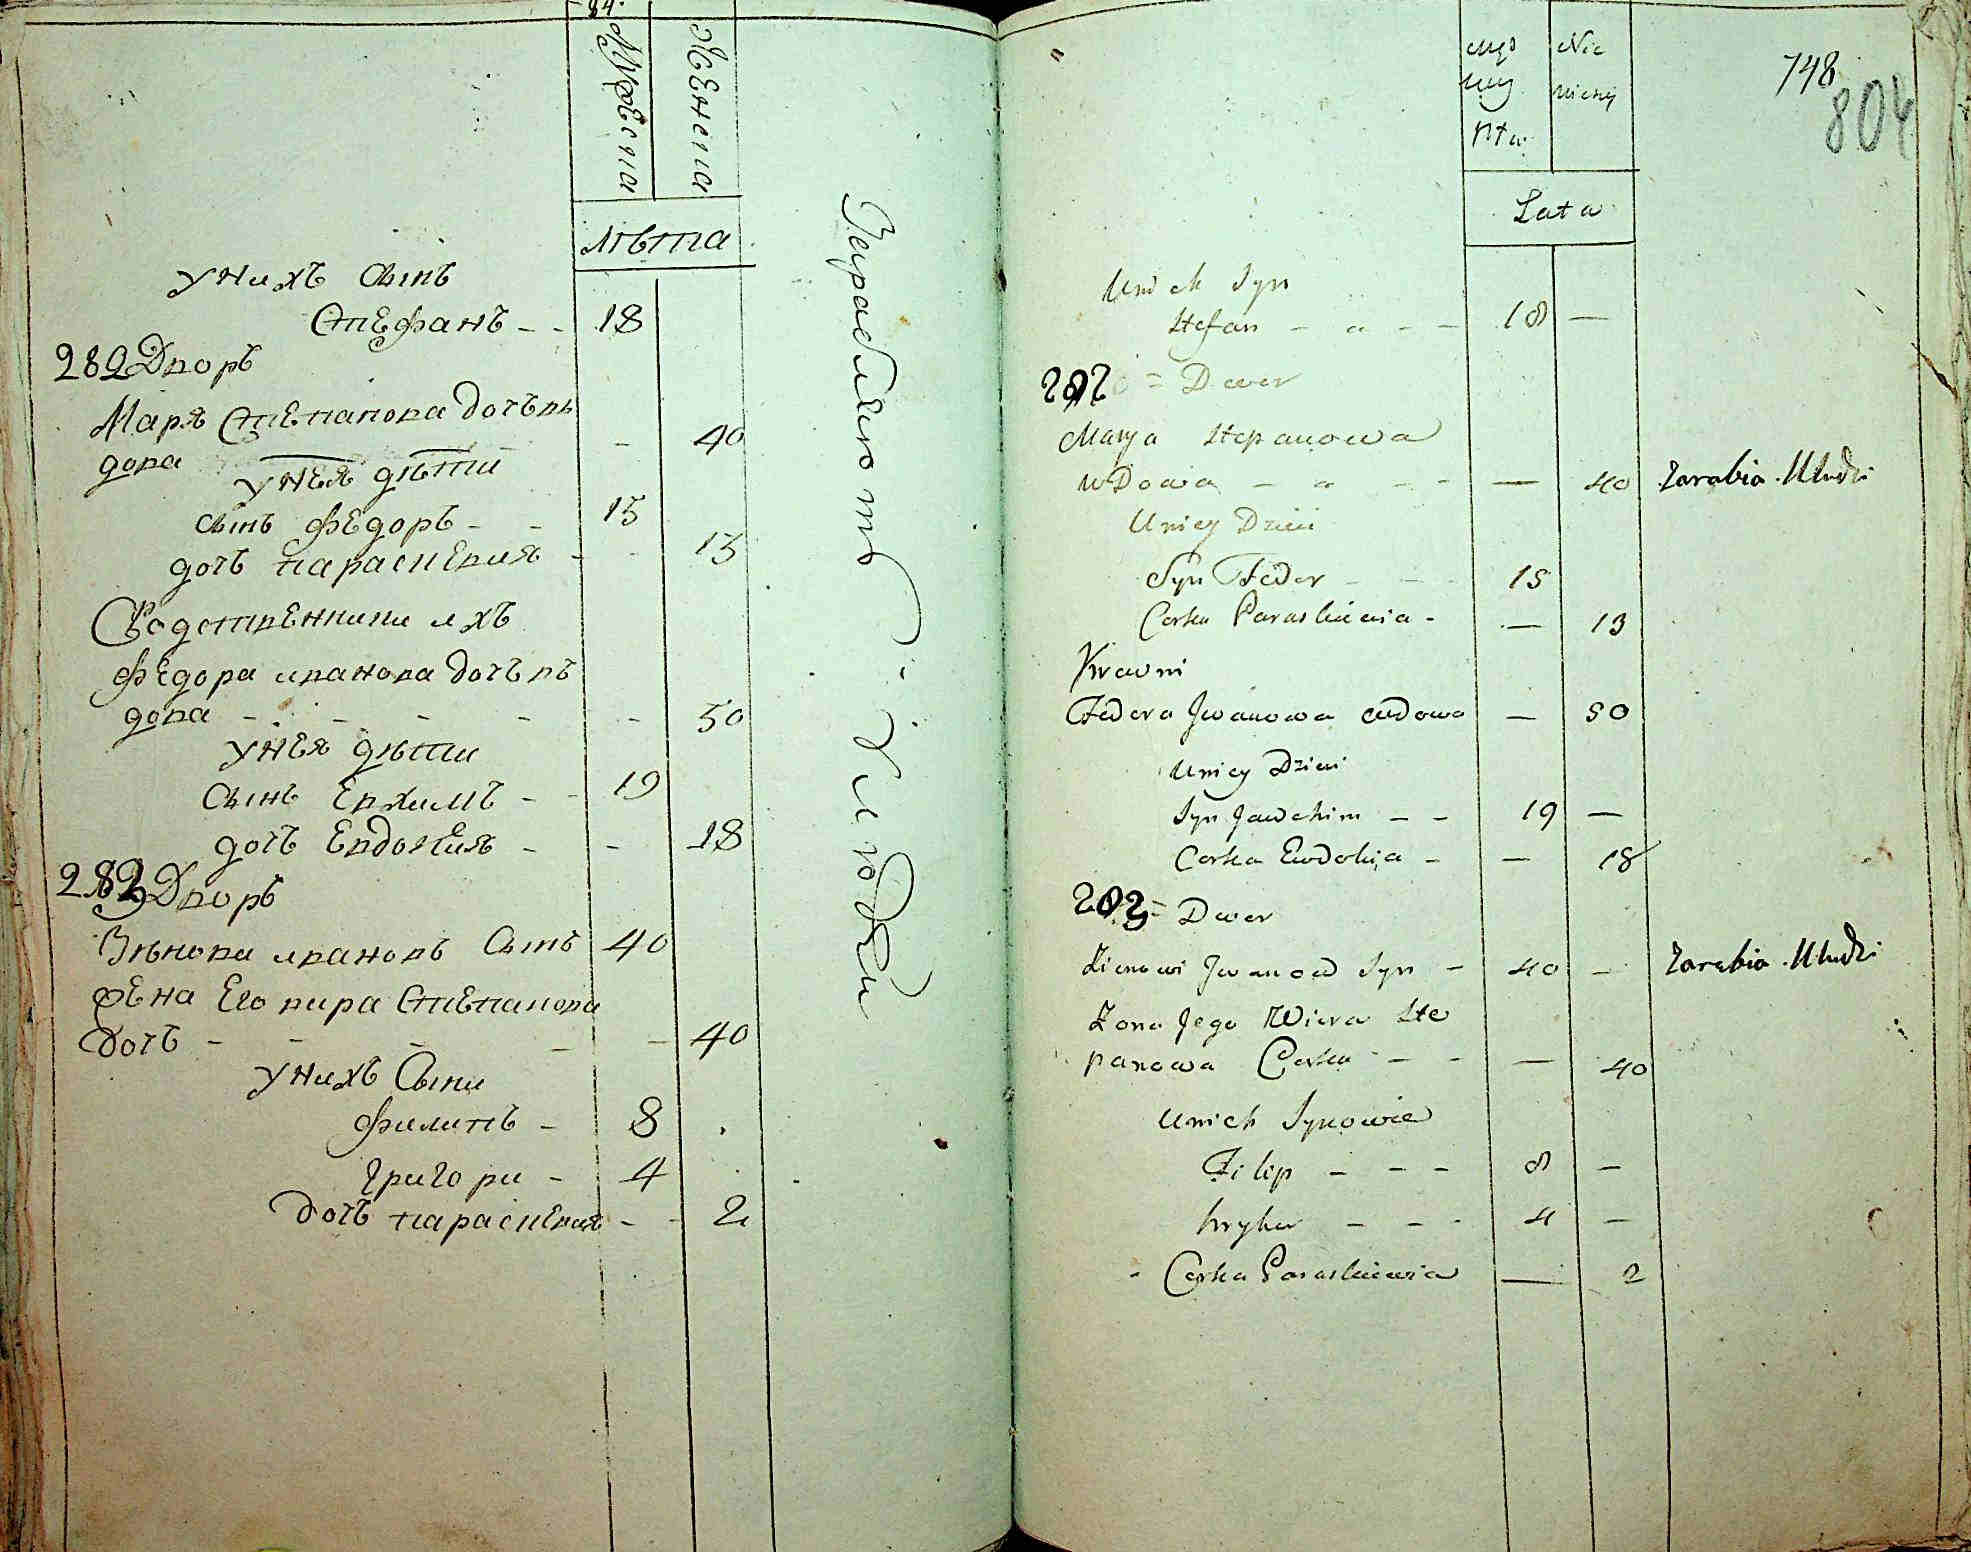 84.
Мужеска
Женска
лѣта
унихъ сынъ
Стефанъ - - 18
282 Дворъ
Маря Степанова дочь в
дова - 40
унея дѣти
сынъ Федоръ - - 15
дочь параскевия - - 13
Родственники ихъ
Федора иванова дочь в
дова - - - - - 50
унея дѣти
сынъ Евхимъ - - 19
дочь Евдокия - - 18
283 Дворъ
Зѣновеи ивановъ сынъ 40
жена Его вира Степанова
дочь - - - - - 40
унихъ Сыни
филипъ - 8
григори - 4
дочь параскевия - - 2
Зарабляютъ у людѣи
748
804
męs
kiey
Płtw
Nie
wiesciey
Lata
Unich Syn
Stefan - - - - 18 -
282 = Dwor
Marya Stepanowa
wDowa - - - - - 40 Zarabia U ludzi
Uniey Dzieci
Syn Fedor - - - 15
Corka Paraskiewia - - 13
Krewni
Fedora Jwanowa wdowa - 50
Uniey Dzieci
Syn Jawchim - - 19 -
Corka Ewdokija - - 18
283 = Dwor
Zienowi Jwanow Syn - 40 - Zarabia U ludzi
Zona Jego Wiera Ste
panowa Corka - - - 40
Unich Synowie
Filip - - - 8 -
hryhor - - - 4 -
- Corka Paraskiewia - 2